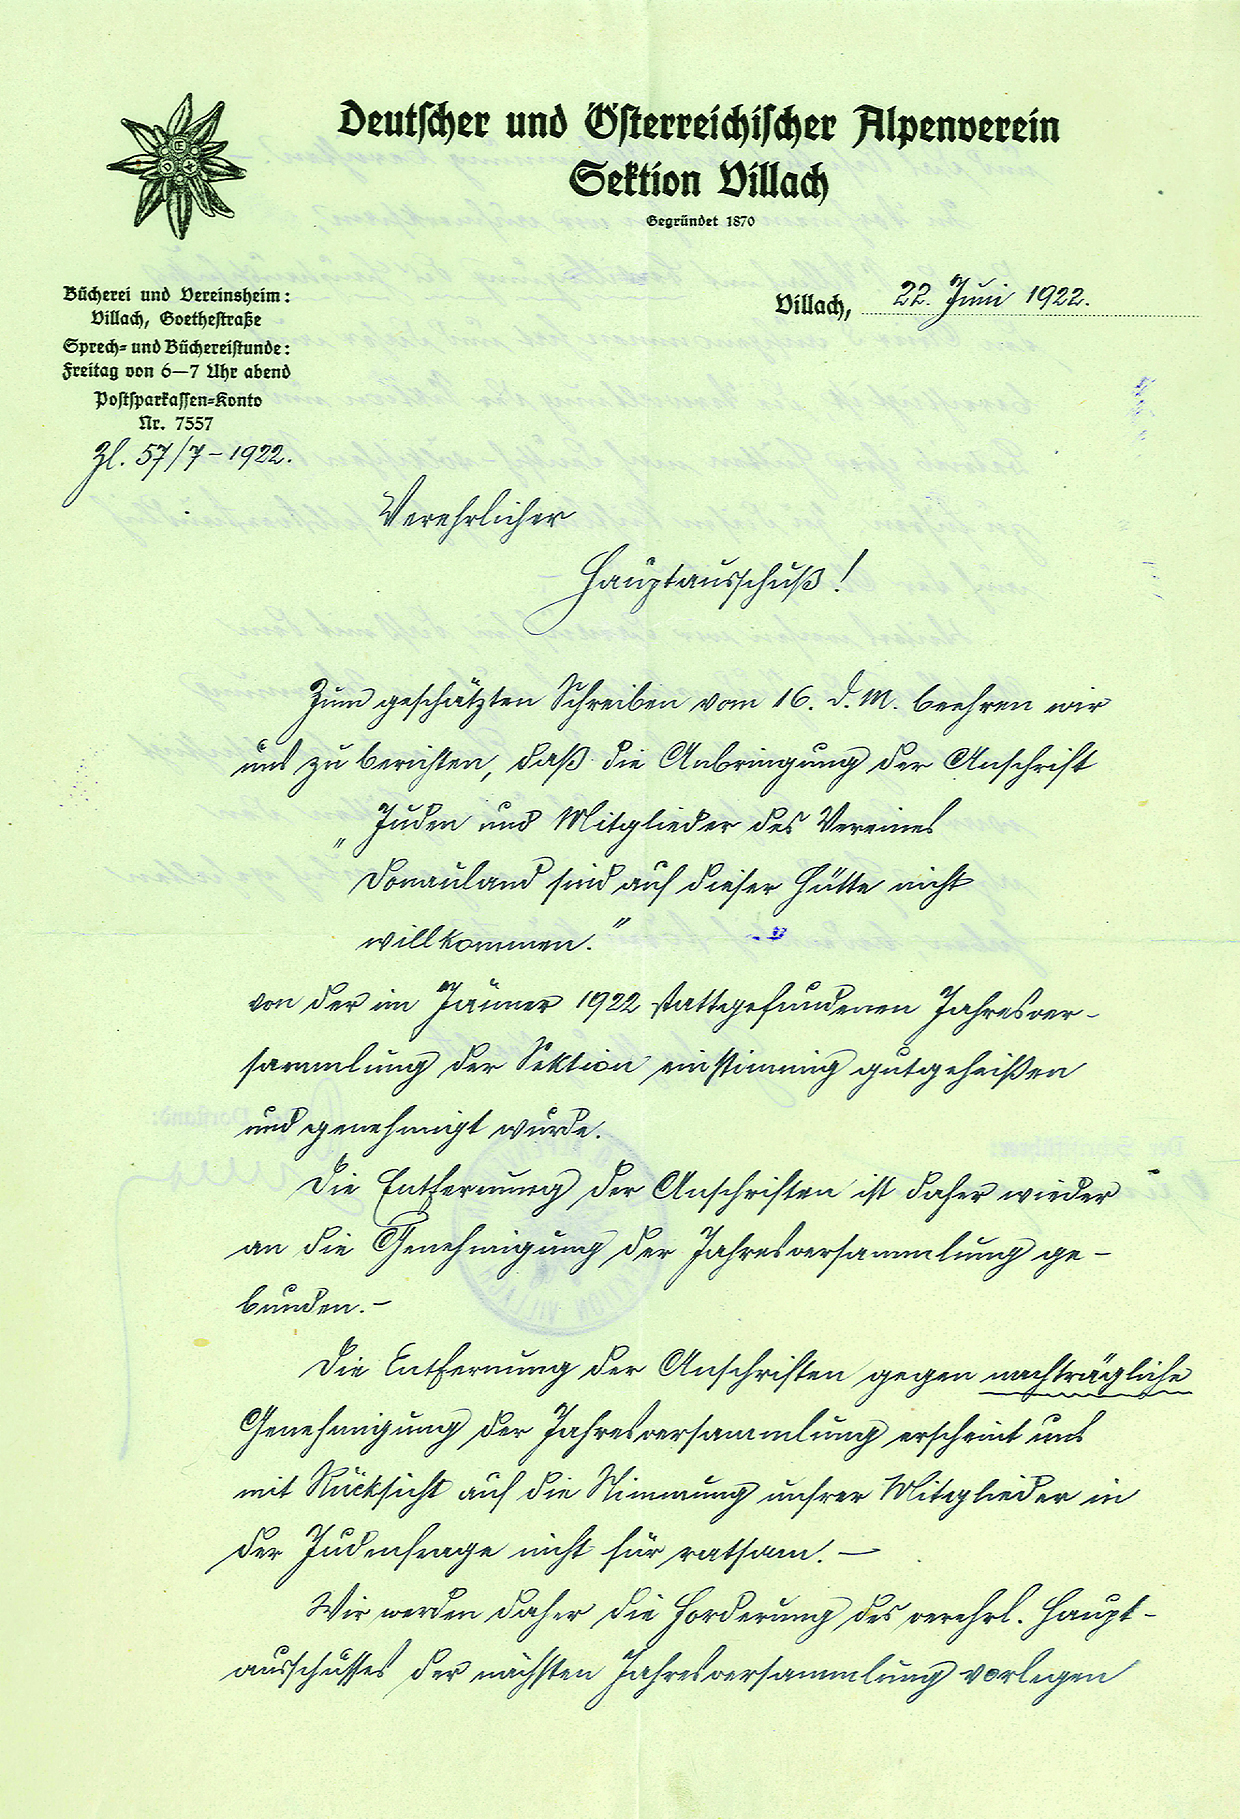 Deutscher und Österreichischer Alpenverein
Sektion Villach
Gegründet 1870
Bücherei und Vereinsheim:
Villach, Goethestraße
Sprech- und Büchereistunde:
Freitag von 6—7 Uhr abend
Postsparkassen-Konto
Nr. 7557
Zl. 57/7-1922.
Villach, 22. Juni 1922.
Verehrlicher
Hauptausschuß!
Zum geschätzten Schreiben vom 16. d. M. beehren wir
uns zu berichten, daß die Anbringung der Anschrift
„Juden und Mitglieder des Vereines
Donauland sind auf dieser Hütte nicht
willkommen.“
von der im Jänner 1922 stattgefundenen Jahresver-
sammlung der Sektion einstimmig gutgeheißen
und genehmigt wurde.
Die Entfernung der Anschriften ist daher wieder
an die Genehmigung der Jahresversammlung ge-
bunden.-
Die Entfernung der Anschriften gegen nachträgliche
Genehmigung der Jahresversammlung erscheint uns
mit Rücksicht auf die Stimmung unsrer Mitglieder in
der Judenfrage nicht für ratsam. —
Wir werden daher die Forderung des verehrl. Haupt-
ausschusses der nächsten Jahresversammlung vorlegen